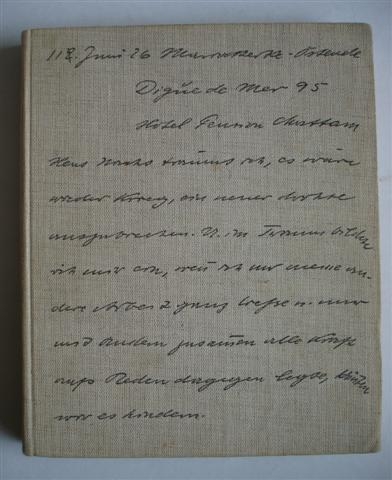 Juni 26 Mariakerke-Ostende
Digue de Mer 95
Hotel Pension Chattam
Heut Nacht träumt ich, es wäre
wieder Krieg, ein neuer drohte
auszubrechen. U. im Traum bildete
ich mir ein, wenn ich nur meine an-
dere Arbeit ganz ließe u. nur
mit Andern zusammen alle Kraft
aufs Reden dagegen legte, könnten
wir es hindern.